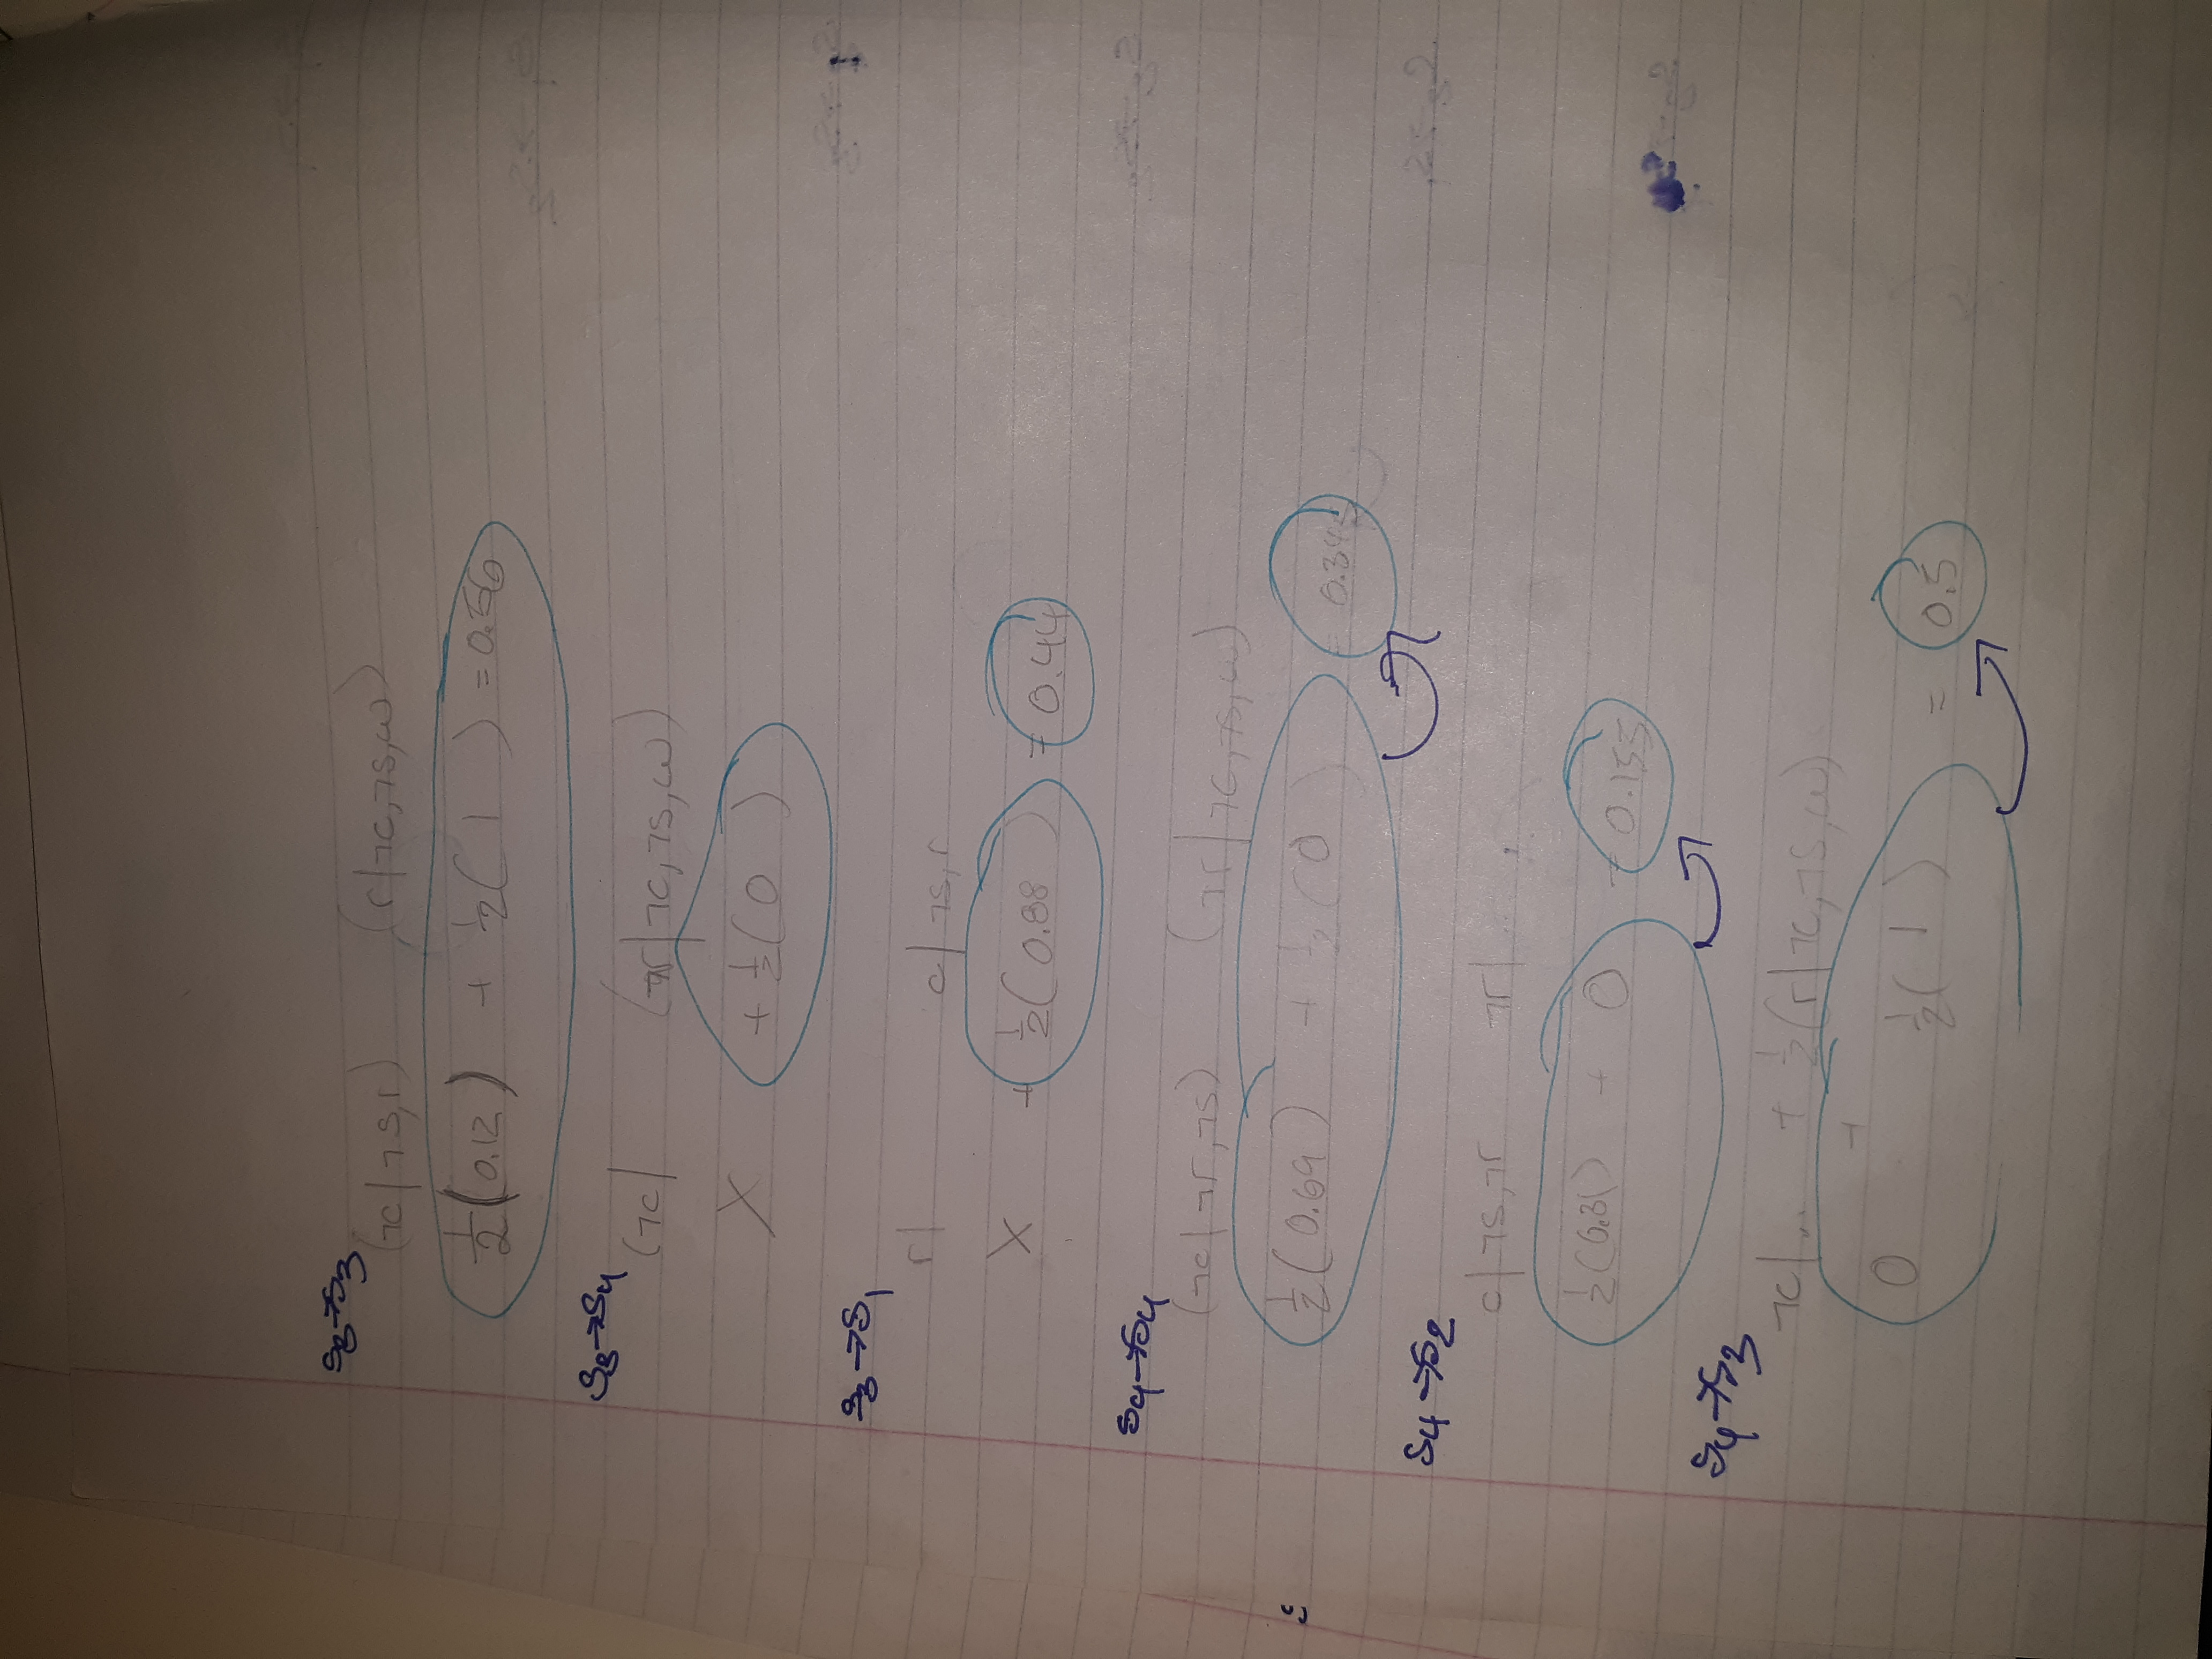 S3→S3
(¬c|¬s,r) (r|¬c,¬s,w)
1/2(0.12) + 1/2(1) = 0.56
S3→S4
(¬c| (¬r|¬c,¬s,w)
X + 1/2(0)
S3→S1
r| c|¬s,r
X + 1/2(0.88) = 0.44
S4→S4
(¬c|¬r,¬s) (¬r|¬c,¬s,w)
1/2(0.69) + 1/2(0) = 0.345
S4→S2
c|¬s,¬r ¬r|...
1/2(0.31) + 0 = 0.155
S4→S3
¬c|.. + 1/2(r|¬c,¬s,w)
0 + 1/2(1) = 0.5